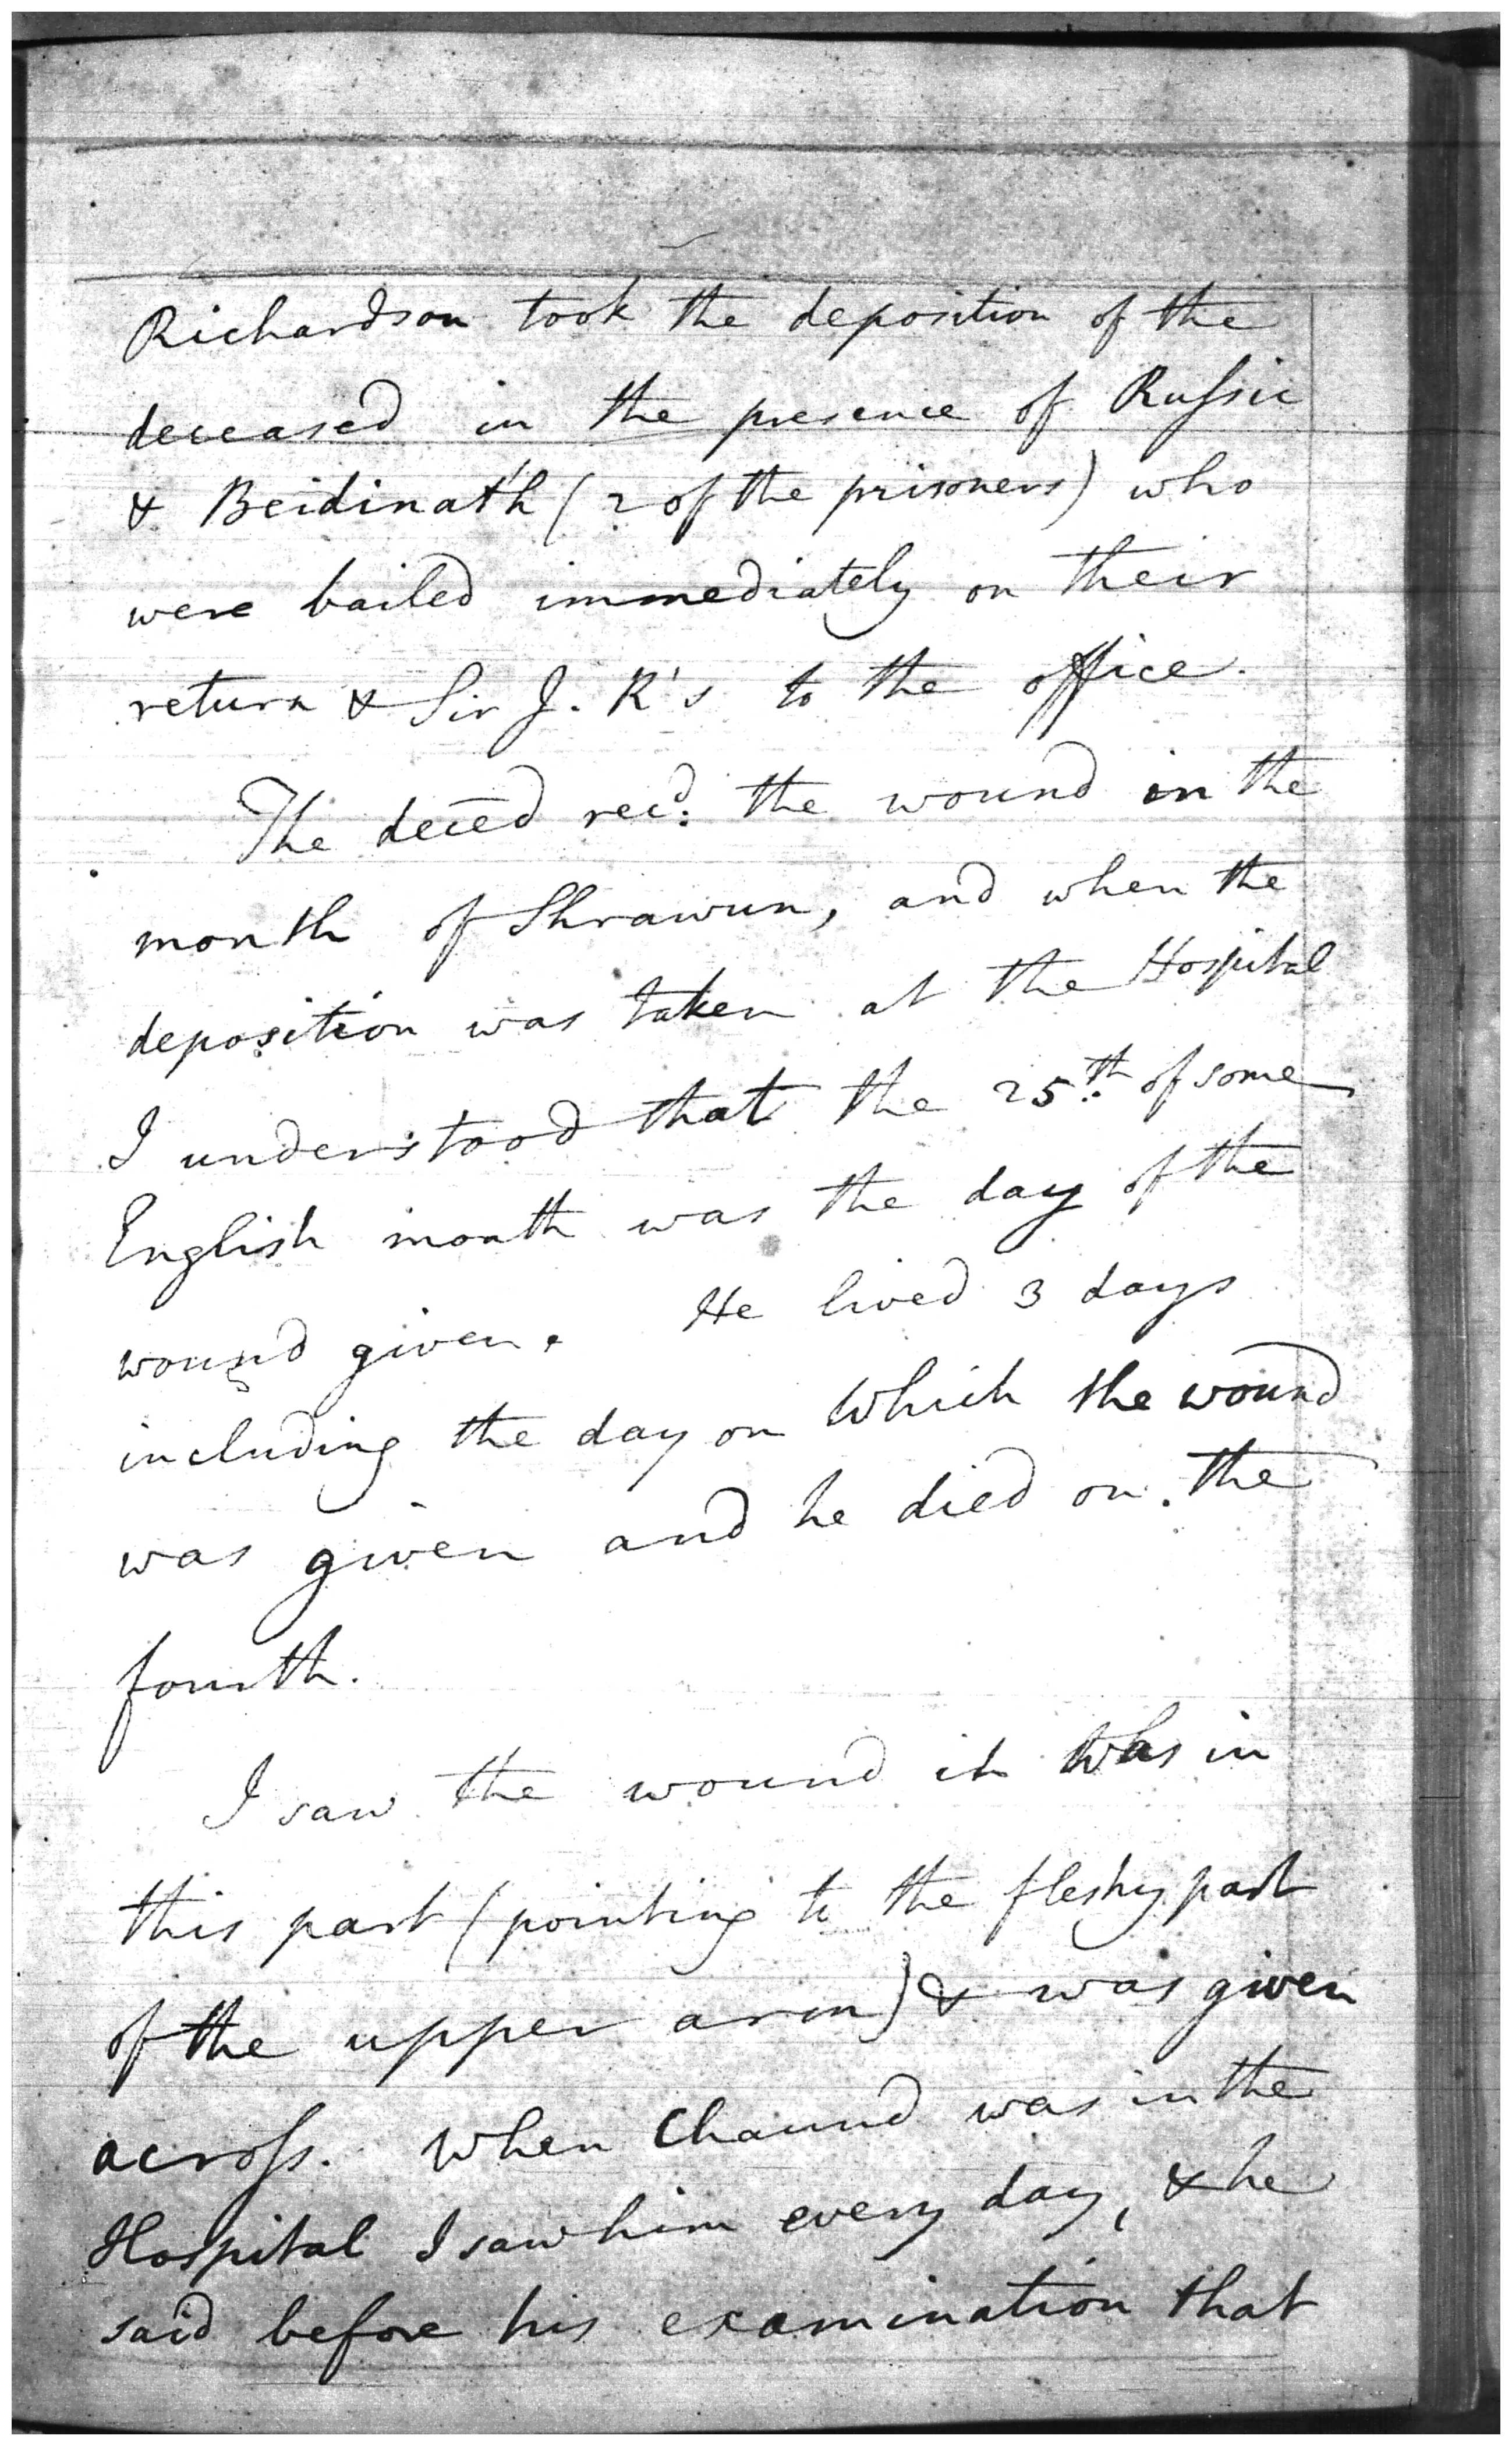 Richardson took the deposition of the
deceased in the presence of Russic
& Beidinath (2 of the prisoners) who
were bailed immediately on their
return & Sir J. R's to the office.
The deced recd: the wound in the
month of Shrawun, and when the
deposition was taken at the Hospital
I understood that the 25th of some
English month was the day of the
wound given. He lived 3 days
including the day on which the wound
was given and he died on the
fourth.
I saw the wound it was in
this part (pointing to the fleshy part
of the upper arm) & was given
across. When Chaund was in the
Hospital I saw him every day, & he
said before his examination that